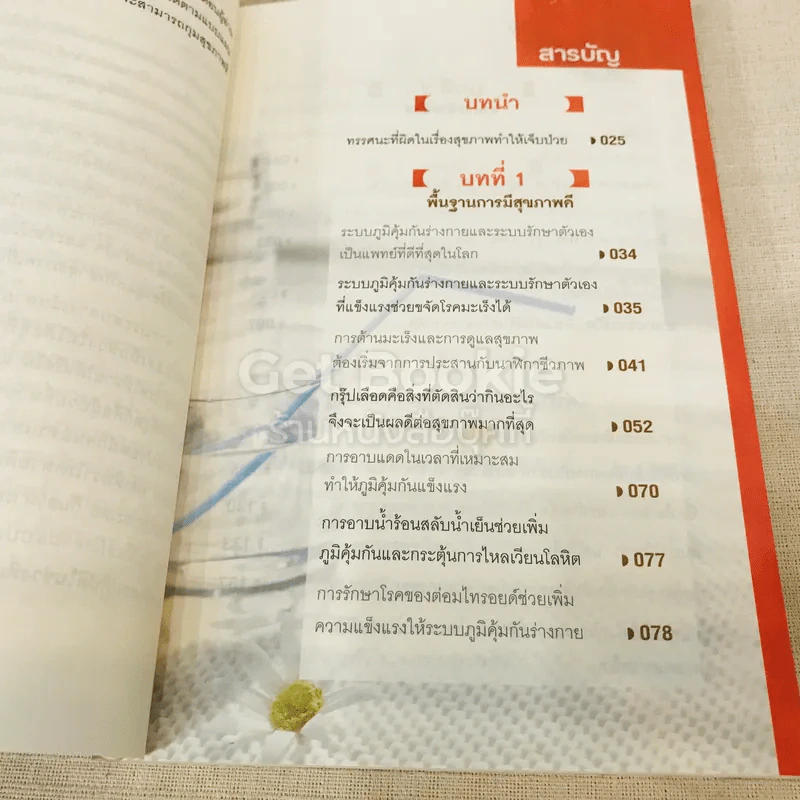 สารบัญ
บทนำ
ทรรศนะที่ผิดในเรื่องสุขภาพทำให้เจ็บป่วย 025
บทที่ 1
พื้นฐานการมีสุขภาพดี
ระบบภูมิคุ้มกันร่างกายและระบบรักษาตัวเอง
เป็นแพทย์ที่ดีที่สุดในโลก 034
ระบบภูมิคุ้มกันร่างกายและระบบรักษาตัวเอง
ที่แข็งแรงช่วยขจัดโรคมะเร็งได้ 035
การต้านมะเร็งและการดูแลสุขภาพ
ต้องเริ่มจากการประสานกับนาฬิกาชีวภาพ 041
Get Bookie
กรุ๊ปเลือดคือสิ่งที่ตัดสินว่ากินอะไร
จึงจะเป็นผลดีต่อสุขภาพมากที่สุด 052
ร้านหนังสือบุ๊คกี้
การอาบแดดในเวลาที่เหมาะสม
ทำให้ภูมิคุ้มกันแข็งแรง 070
การอาบน้ำร้อนสลับน้ำเย็นช่วยเพิ่ม
ภูมิคุ้มกันและกระตุ้นการไหลเวียนโลหิต 077
การรักษาโรคของต่อมไทรอยด์ช่วยเพิ่ม
ความแข็งแรงให้ระบบภูมิคุ้มกันร่างกาย 078